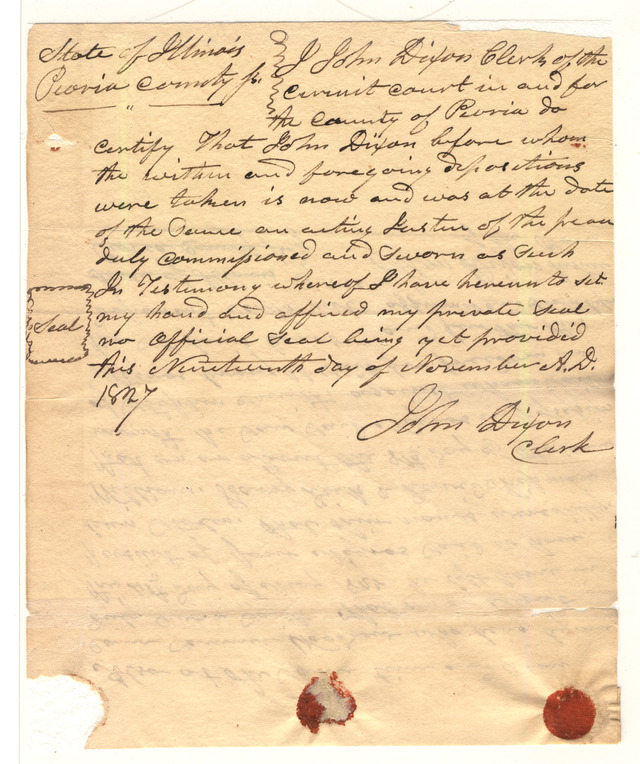 State of Illinois
Peoria County ss.
I John Dixon Clerk of the
Circuit court in and for
the County of Peoria do
certify That John Dixon before whom
the within and foregoing depositions
were taken is now and was at the date
of the Same an acting Justice of the peace
duly commissioned and sworn as such
In Testimony whereof I have hereunto set
my hand and affixed my private Seal
no Official Seal being yet provided
this Nineteenth day of November A.D.
1827
Seal
John Dixon
Clerk